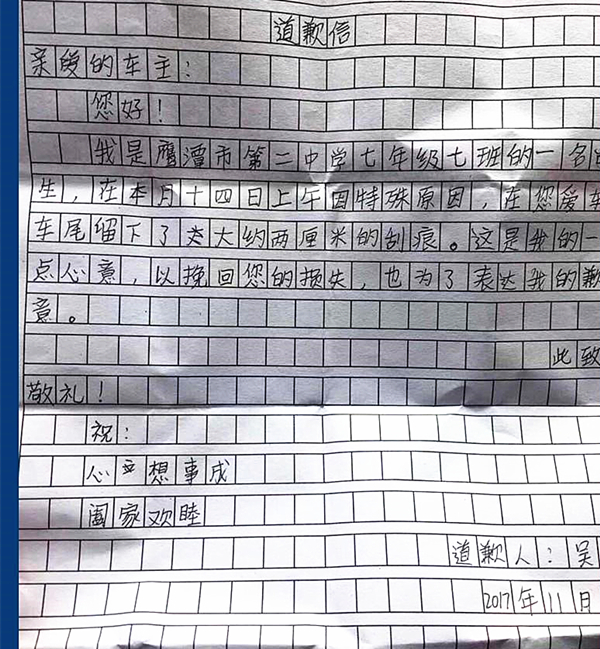 道歉信
亲爱的车主：
您好！
我是鹰潭市第二中学七年级七班的一名
生，在本月十四日上午因特殊原因，在您爱车
车尾留下了大约两厘米的刮痕。这是我的一
点心意，以挽回您的损失，也为了表达我的歉
意。
此致
敬礼！
祝：
心想事成
阖家欢睦
道歉人：吴
2017年11月